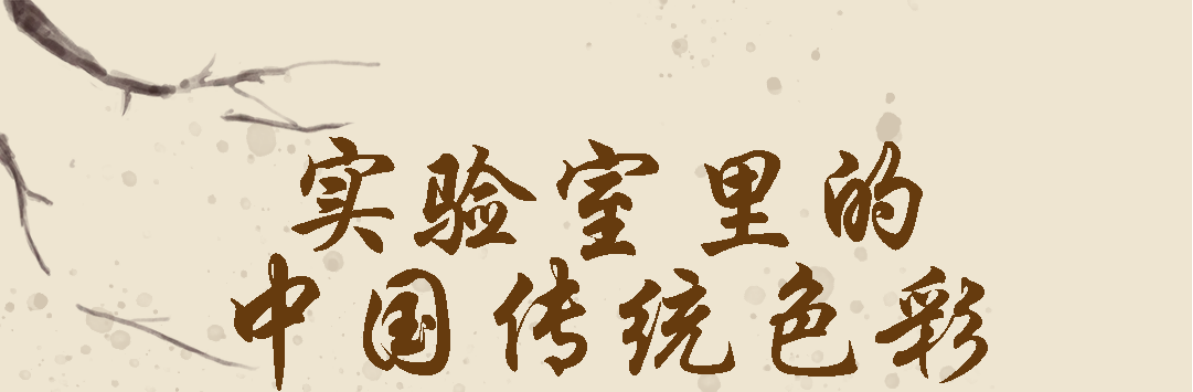 实验室里的
中国传统色彩